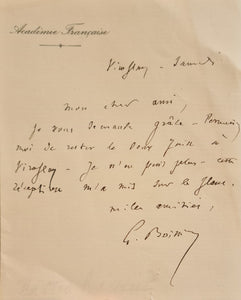 Académie Française
Viroflay - Samedi
Mon cher ami,
Je vous demande grâce - Permettez
moi de rester le Jour Juin à
Viroflay - Je n'en puis plus - cette
réception m'a mis sur le flanc.
mille amitiés,
G. Boissier